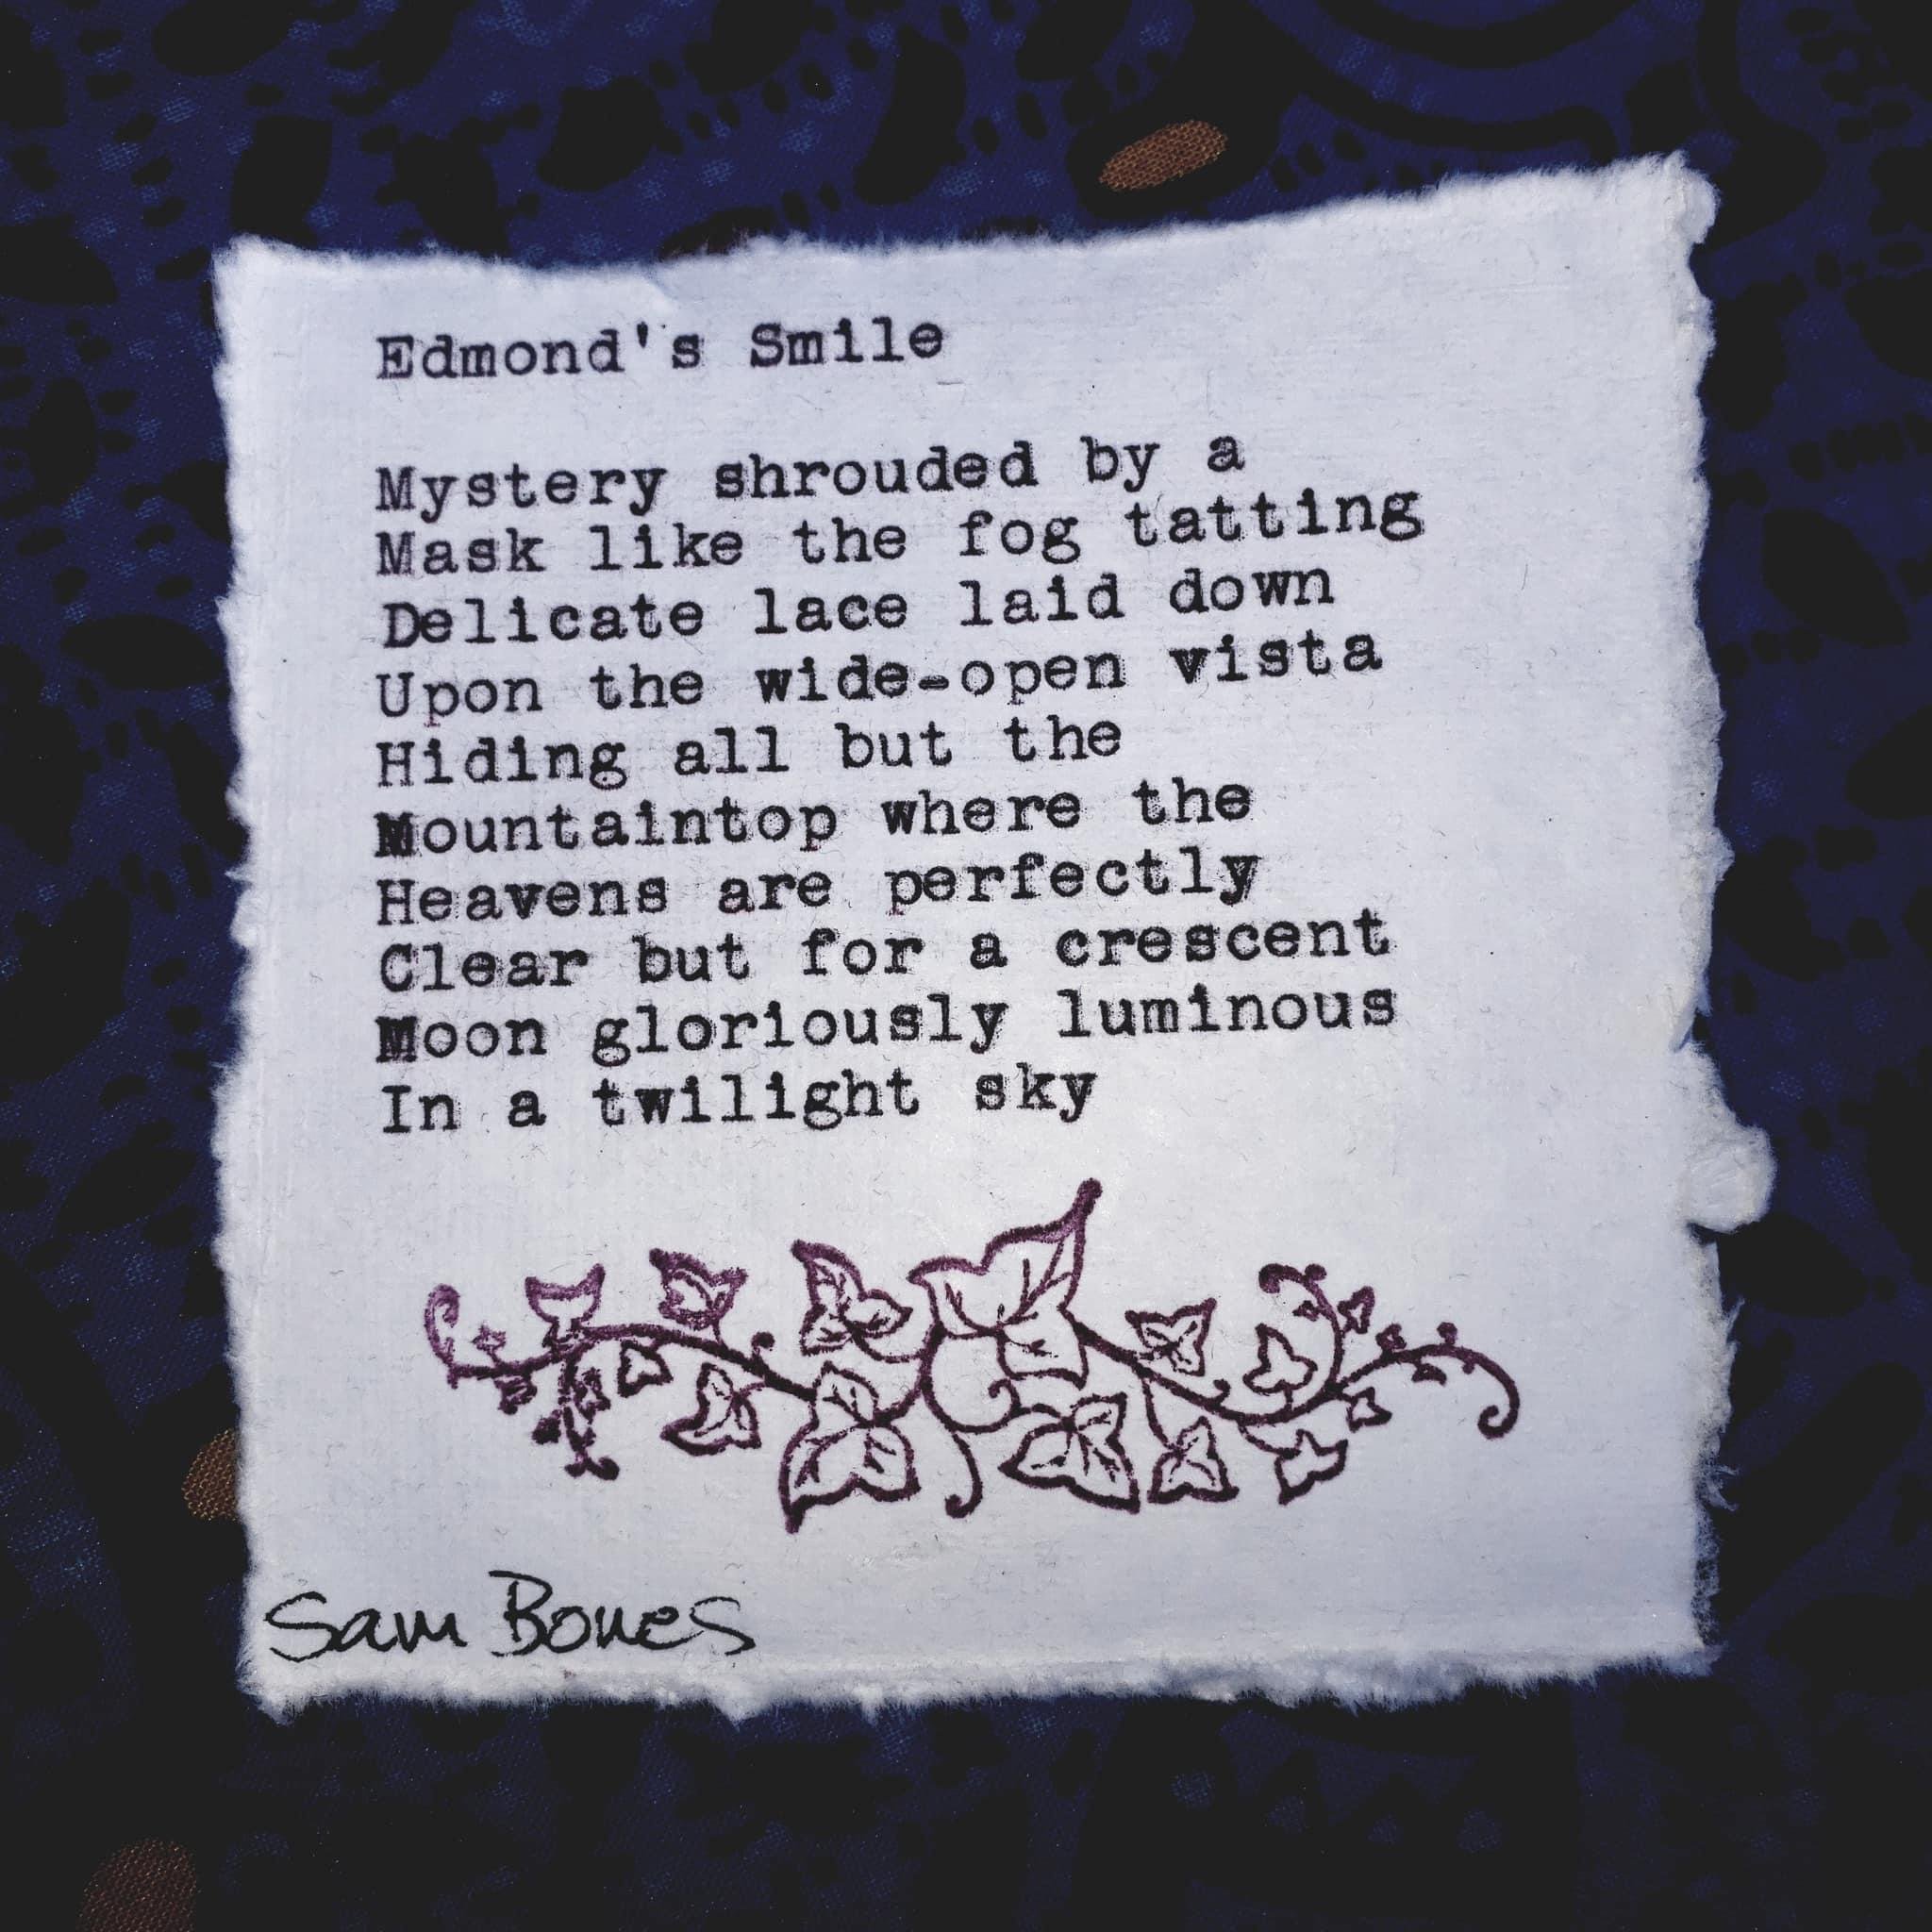 Edmond's Smile
Mystery shrouded by a
Mask like the fog tatting
Delicate lace laid down
Upon the wide-open vista
Hiding all but the
Mountaintop where the
Heavens are perfectly
Clear but for a crescent
Moon gloriously luminous
In a twilight sky
Sam Bones